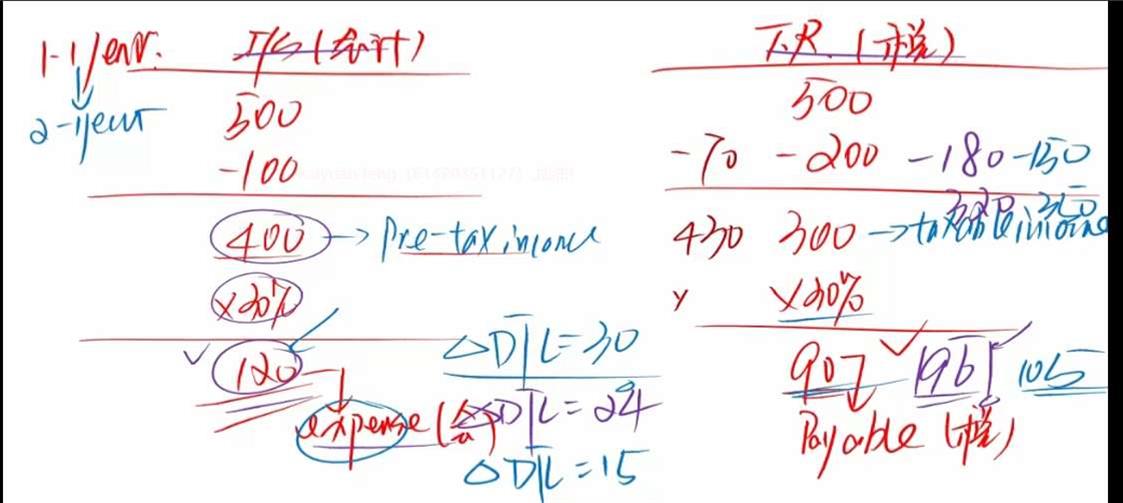 1-1/year. I/S (会计) T.R (税)
2-1year 500 500
-100 -70 -200 -180 -150
400 → Pre-tax income 430 300 → taxable income 320 350
×30% ×30%
120 90 96 105
△DTL=30
expense (会) △DTL=24 Payable (税)
△DTL=15